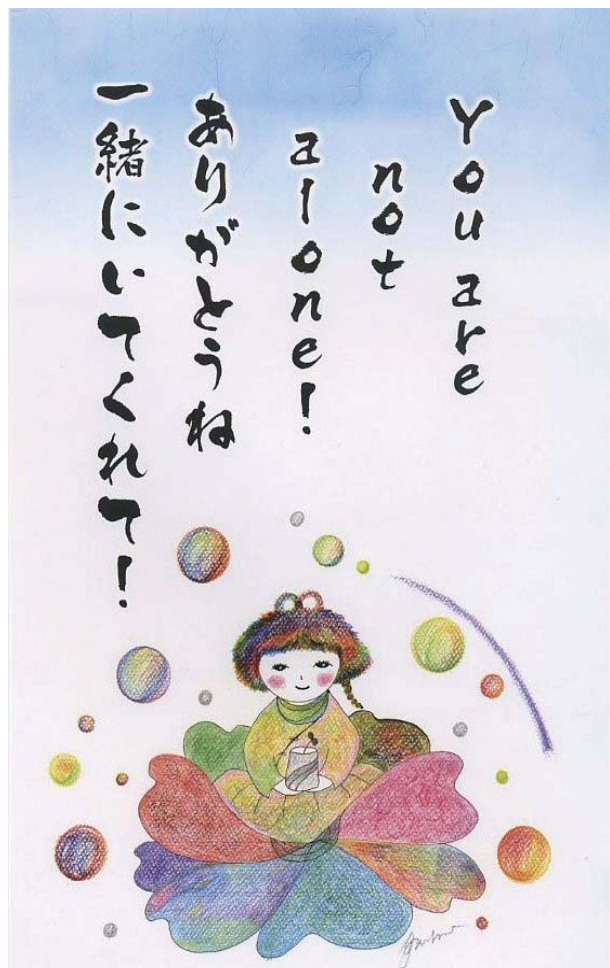 You are
not
alone!
ありがとうね
一緒にいてくれて!